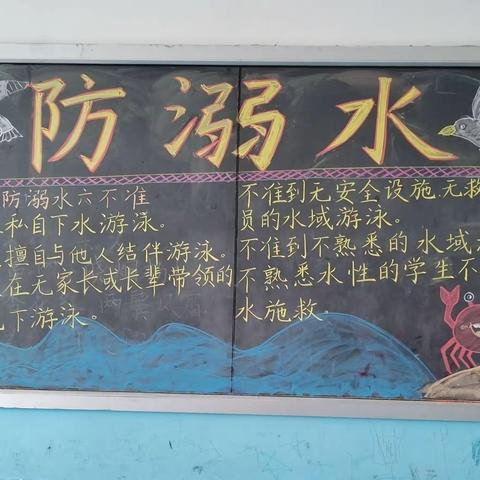 防溺水
防溺水六不准
私自下水游泳。
擅自与他人结伴游泳。
在无家长或长辈带领的
下游泳。
不准到无安全设施、无救
员的水域游泳。
不准到不熟悉的水域
不熟悉水性的学生不
水施救。